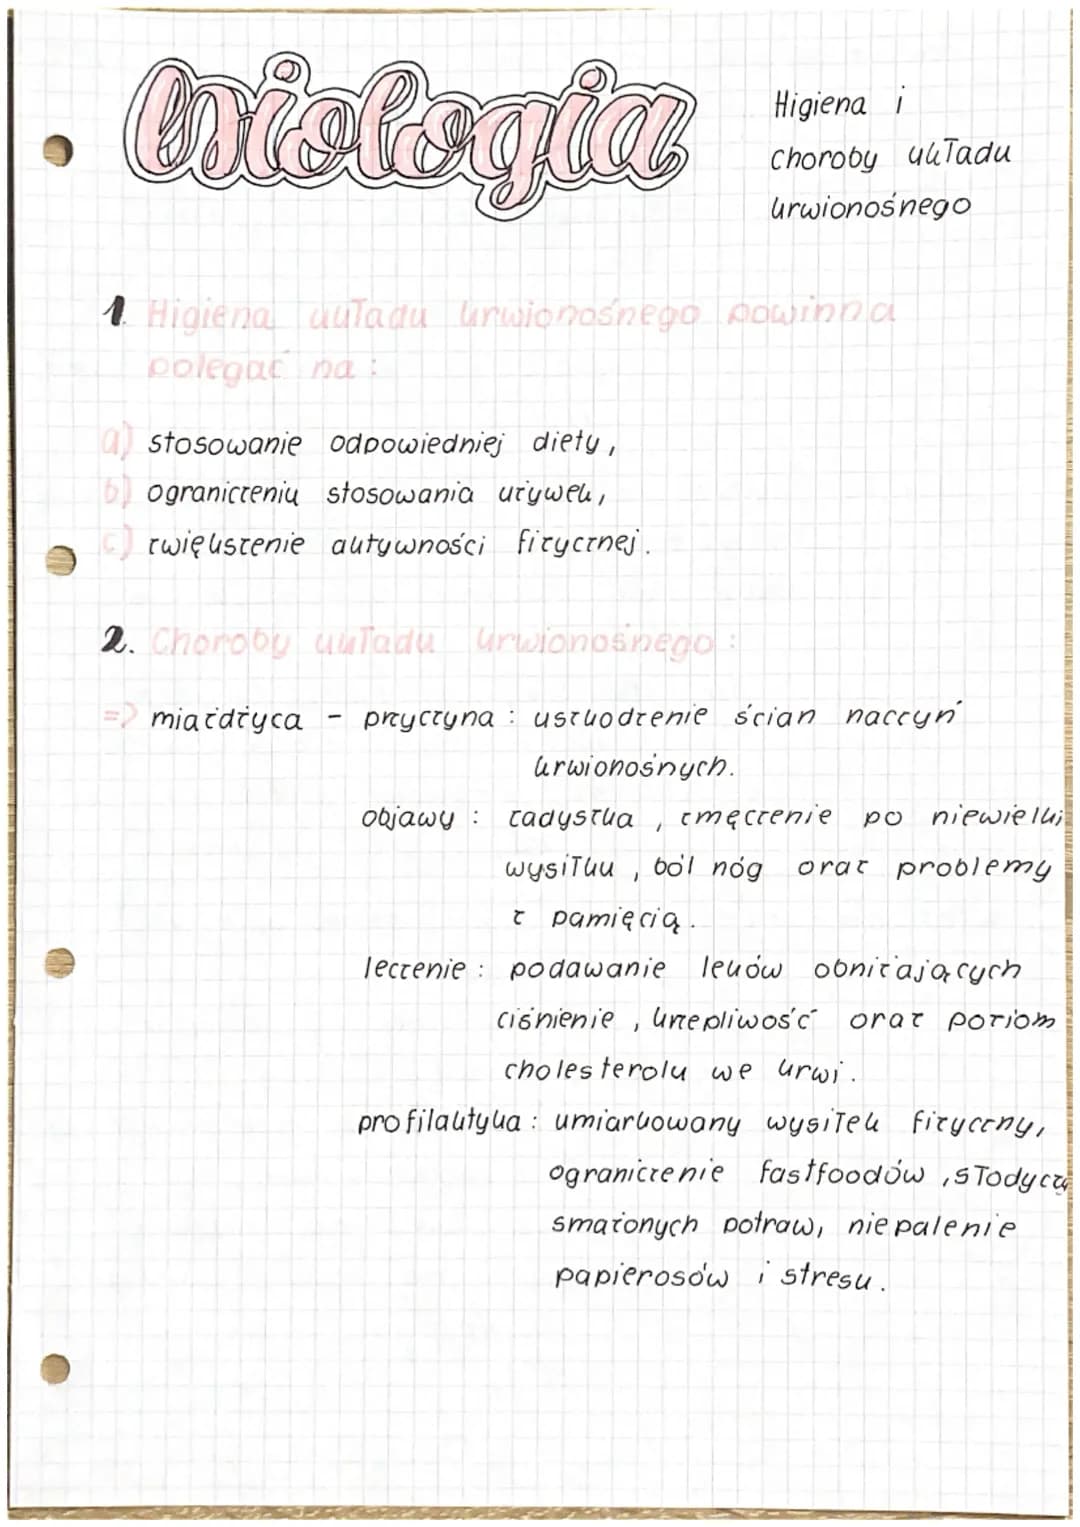 biologia
Higiena i
choroby układu
krwionośnego
1. Higiena układu krwionośnego powinna
polegać na:
a) stosowanie odpowiedniej diety,
b) ograniczeniu stosowania używek,
c) zwiększenie aktywności fizycznej.
2. Choroby układu krwionośnego:
=> miażdżyca - przyczyna: uszkodzenie ścian naczyń
krwionośnych.
objawy: zadyszka, zmęczenie po niewielki
wysiłku, ból nóg oraz problemy
z pamięcią.
leczenie: podawanie leków obniżających
ciśnienie, krzepliwość oraz poziom
cholesterolu we krwi.
profilaktyka: umiarkowany wysiłek fizyczny,
ograniczenie fastfoodów, słodyczy
smażonych potraw, niepalenie
papierosów i stresu.